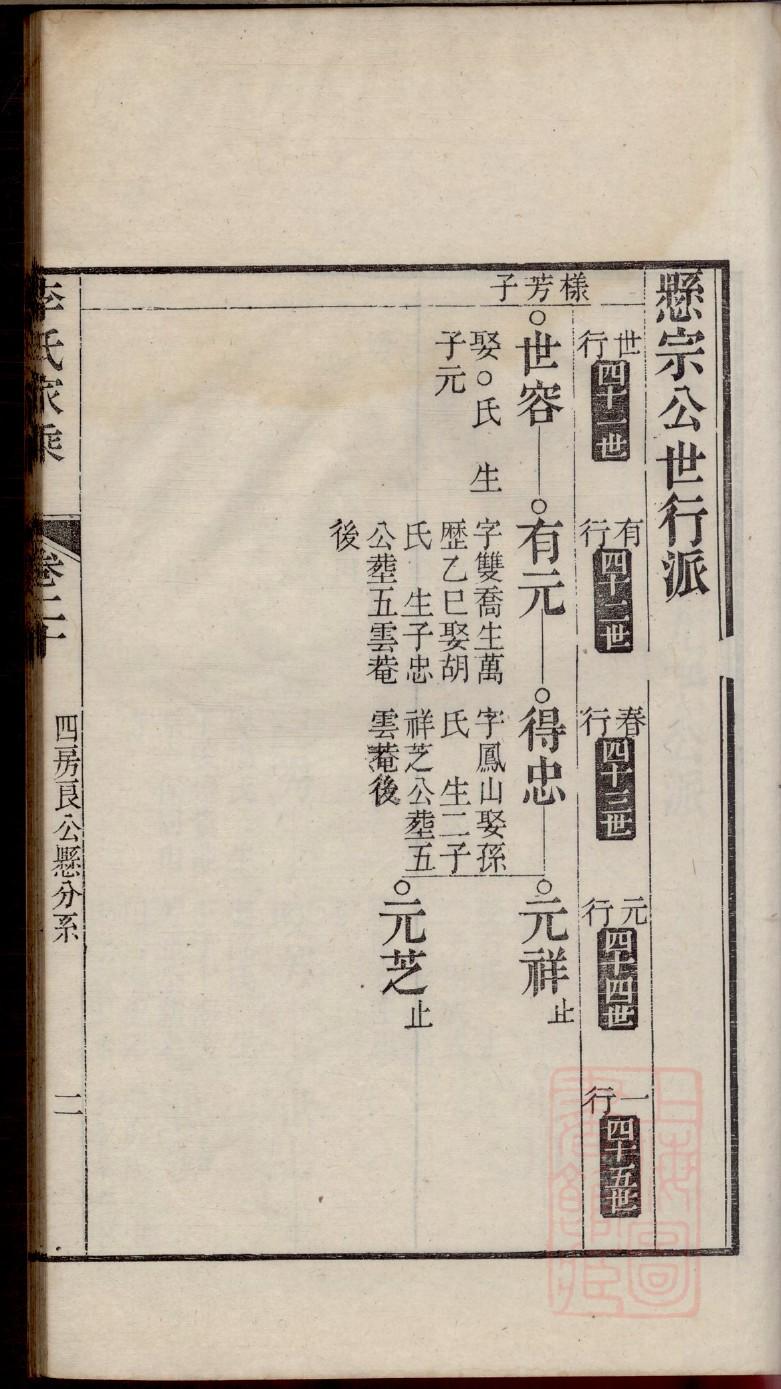 懸宗公世行派
世行四十一世
有行四十二世
春行四十三世
元行四十四世
一行四十五世
樣芳子
世容
娶○氏　生
子元
有元
字雙喬生萬
歴乙巳娶胡
氏　生子忠
公塟五雲菴
後
得忠
字鳳山娶孫
氏　生二子
祥芝公塟五
雲菴後
元祥止
元芝止
李氏家乘
卷二十
四房良公懸分系
二